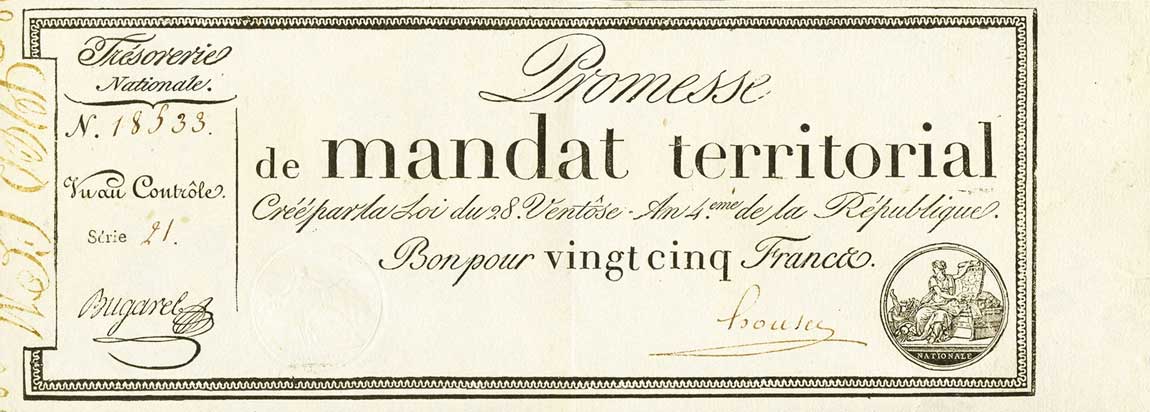 Trésorerie
Nationale.
N. 18533.
Vu au Contrôle.
Série 21.
Bugarel
Promesse
de mandat territorial
Créé par la Loi du 28. Ventôse - An 4.ème de la République.
Bon pour vingt cinq Francs.
NATIONALE